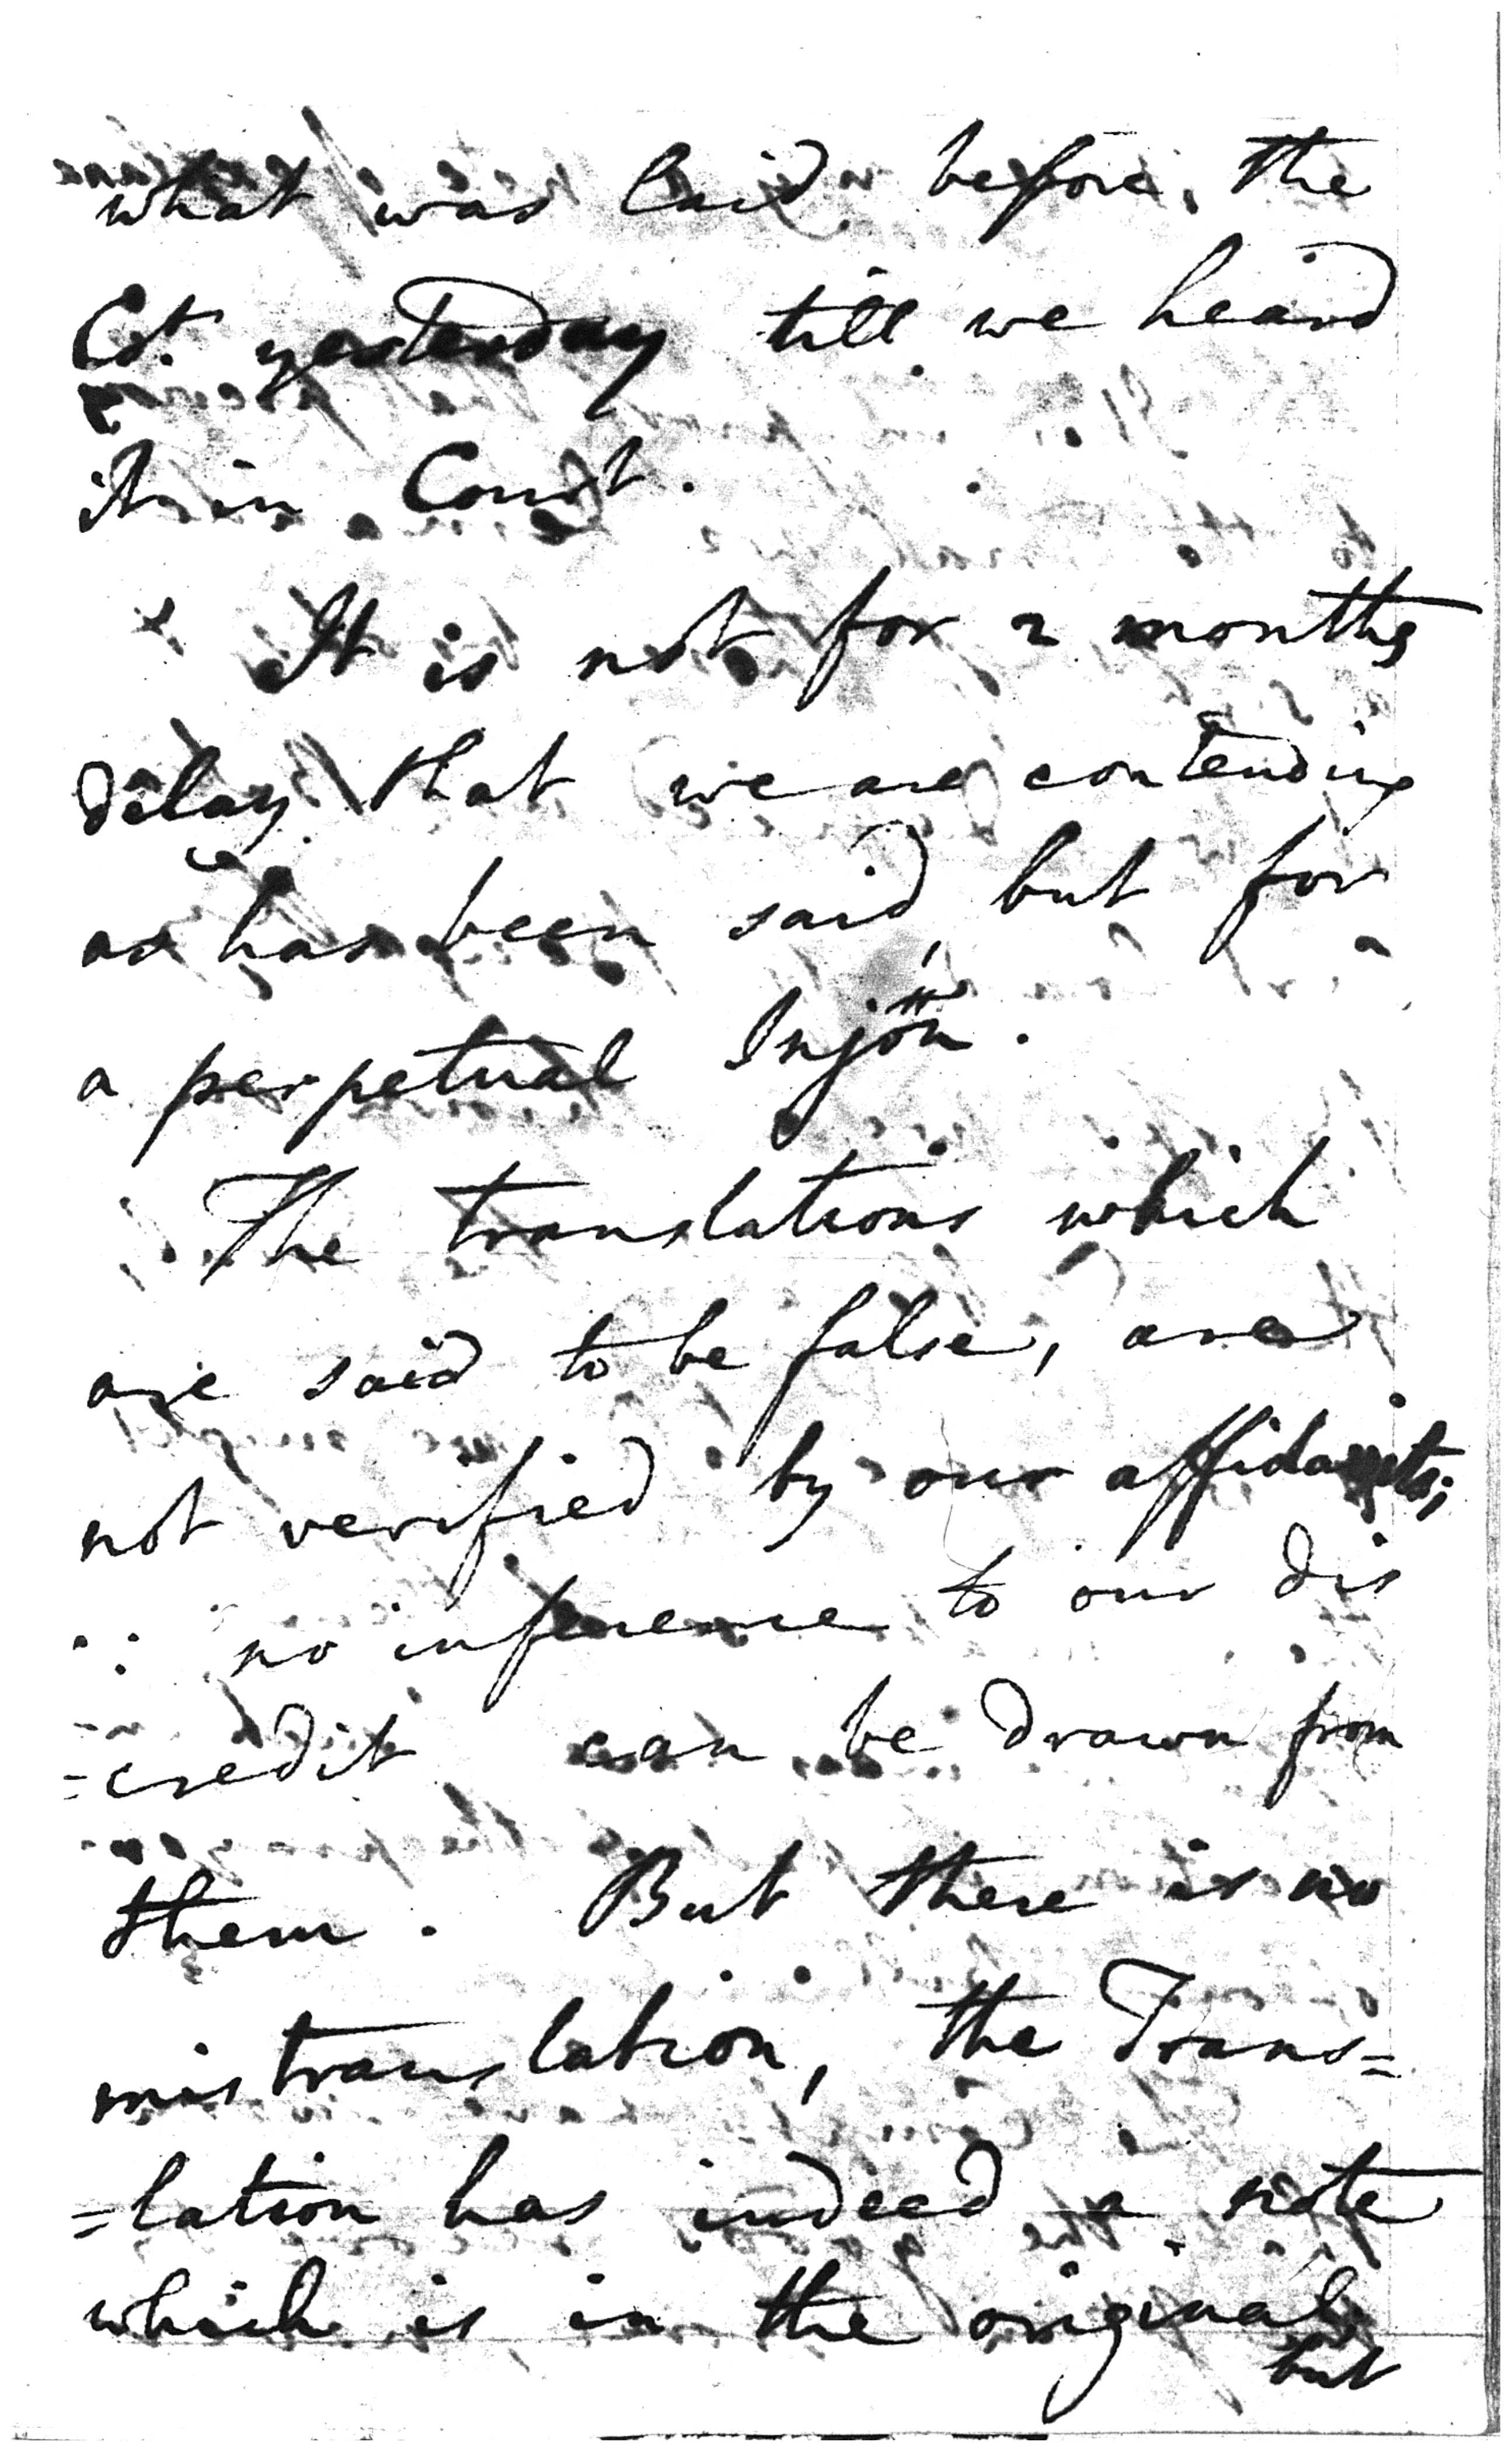 what was laid before, the
Ct. yesterday till we heard
it in Court.
It is not for 2 months
delay that we are contending
as has been said, but for
a perpetual Injon.
The translations which
are said to be false, are
not verified by our affidavits;
∴ no inference to our dis
=credit can be drawn from
them. But there is no
mistranslation, the Trans=
=lation has indeed a note
which is in the original
but